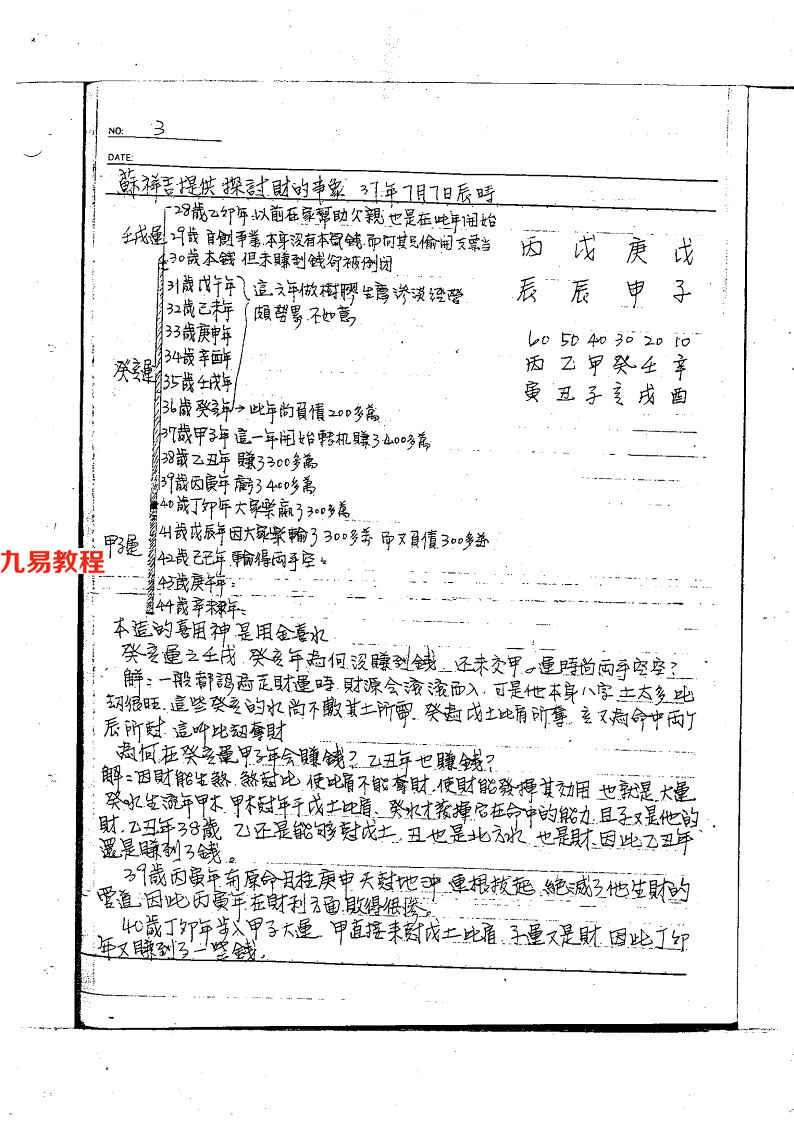 NO: 3
DATE:
蘇祥吉提供 探討財的事象 37年7月7日辰時
28歲乙卯年 以前在家幫助父親 也是在此年開始
壬戌運 29歲 自創事業,本身沒有本質錢,而向其兄偷開支票當
30歲 本錢 但未賺到錢卻被倒閉
31歲戊午年 這六年做樹膠生意滲淡經營
32歲己未年 頗勞累 不如意
33歲庚申年
34歲辛酉年
癸亥運
35歲壬戌年
36歲癸亥年→此年尚負債200多萬
37歲甲子年 這一年開始轉机賺了400多萬
38歲乙丑年 賺了300多萬
39歲丙寅年 虧了400多萬
40歲丁卯年 大家樂贏了300多萬
41歲戊辰年因大家樂輸了300多萬 而又負債300多萬
甲子運
42歲己巳年 輸得兩手空。
43歲庚午年:
44歲辛未年:
丙 戊 庚 戊
辰 辰 申 子
60 50 40 30 20 10
丙 乙 甲 癸 壬 辛
寅 丑 子 亥 戌 酉
九易教程
本造的喜用神是用金喜水
癸亥運之壬戌 癸亥年為何沒賺到錢 还未交甲。運時尚兩手空空?
解:一般都認為走財運時,財源会滾滾而入,可是他本身八字土太多比
劫很旺,這些癸亥的水尚不敷其土所需,癸為戊土比肩所奪,亥又為命中兩个
辰所尅,這叫比劫奪財
為何在癸亥運甲子年会賺錢?乙丑年也賺錢?
解:因財能生煞,煞尅比,使比肩不能奪財,使財能發揮其効用 也就是大運
癸水生流年甲木,甲木尅年干戊土比肩、癸水才發揮它在命中的能力,且子又是他的
財,乙丑年38歲 乙还是能够尅戊土,丑也是北方水 也是財,因此乙丑年
還是賺到了錢。
39歲丙寅年與原命月柱庚申天尅地沖 連根拔起 絕滅了他生財的
管道,因此丙寅年在財利方面敗得很慘。
40歲丁卯年步入甲子大運 甲直接來尅戊土比肩,子運又是財,因此丁卯
年又賺到了一些錢。